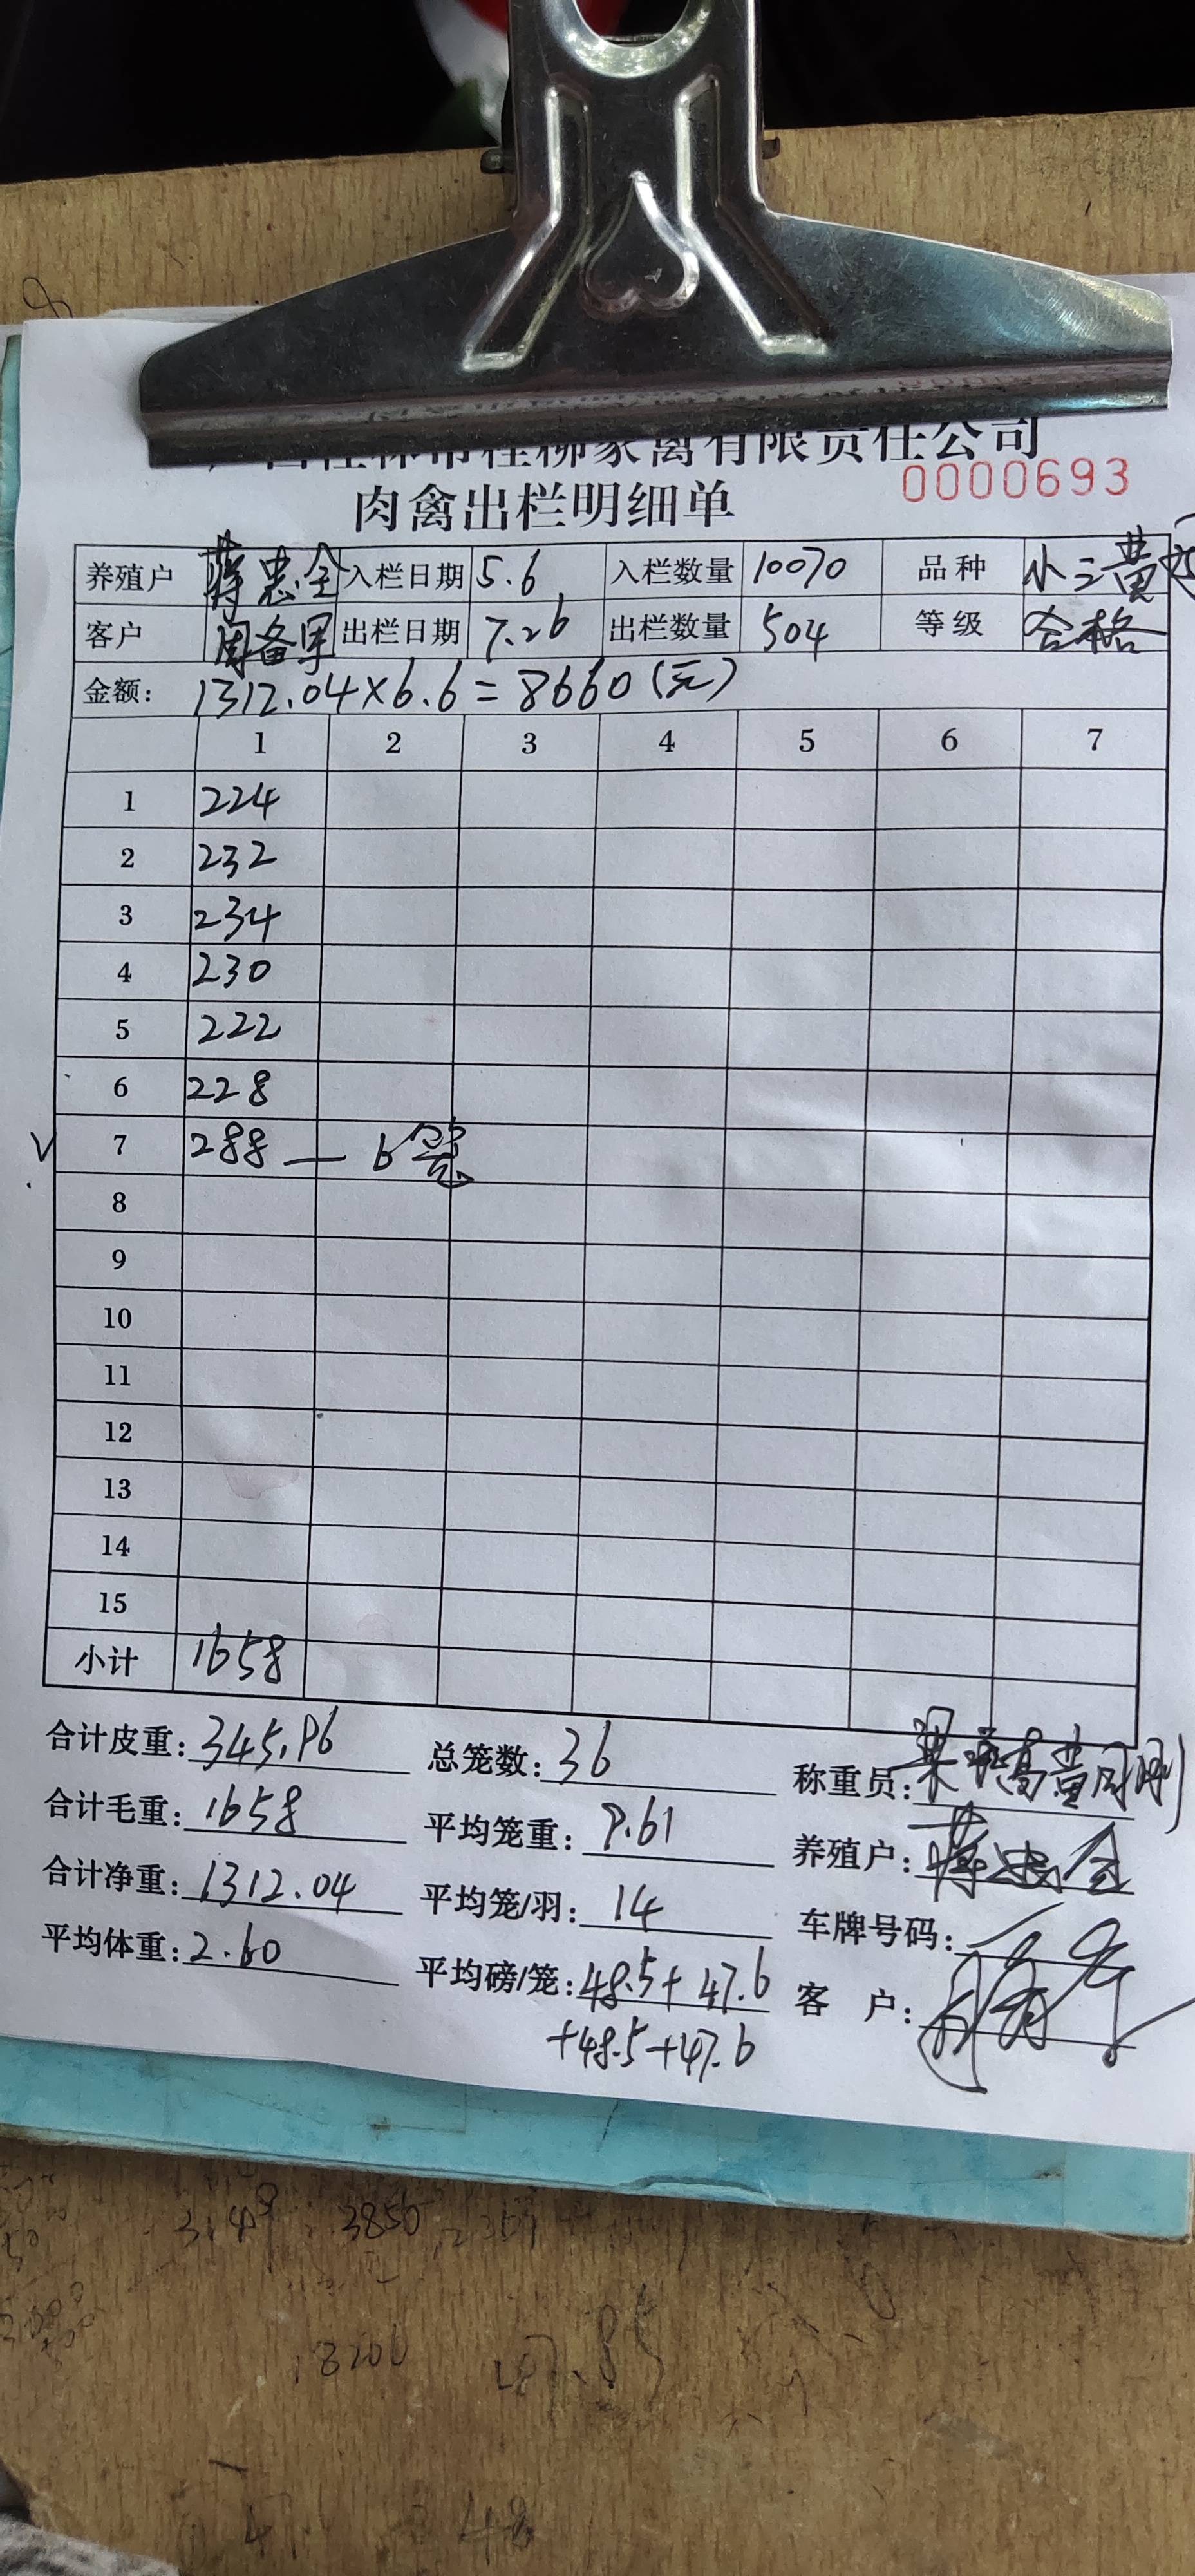 桂柳家禽有限责任公司
肉禽出栏明细单 0000693
养殖户 蒋忠全 入栏日期 5.6 入栏数量 10070 品种 小三黄
客户 周备军 出栏日期 7.26 出栏数量 504 等级 合格
金额: 1312.04×6.6=8660(元)
1 2 3 4 5 6 7
1 224
2 232
3 234
4 230
5 222
6 228
V 7 288 — 6笼
8
9
10
11
12
13
14
15
小计 1658
合计皮重: 345.96 总笼数: 36 称重员:
合计毛重: 1658 平均笼重: 9.61 养殖户: 蒋忠全
合计净重: 1312.04 平均笼/羽: 14 车牌号码:
平均体重: 2.60 平均磅/笼: 48.5+47.6 客 户:
+48.5+47.6
3850